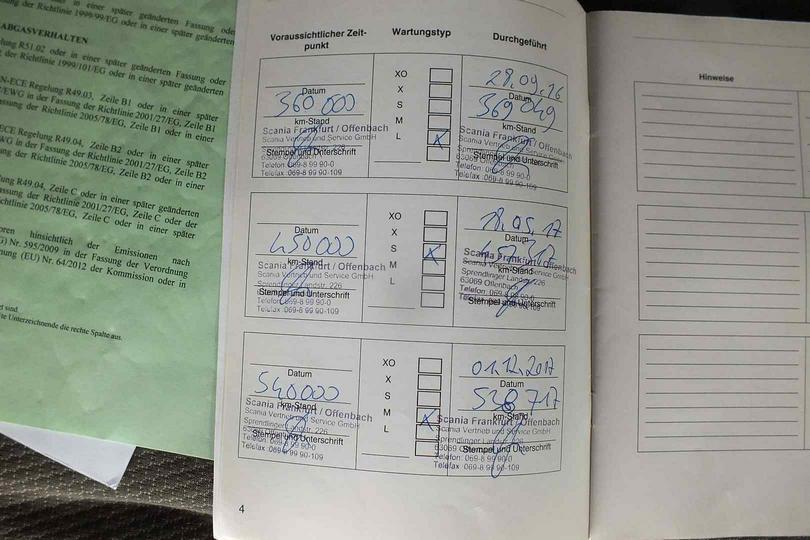 in später geänderten Fassung oder
der Richtlinie 1999/99/EG oder in einer später geänderten
ABGASVERHALTEN
R51.02 oder in einer später geänderten Fassung oder
der Richtlinie 1999/101/EG oder in einer später geänderten
N-ECE Regelung R49.03, Zeile B1 oder in einer später
in der Fassung der Richtlinie 2001/27/EG, Zeile B1
2005/78/EG, Zeile B1 oder in einer
ECE Regelung R49.04, Zeile B2 oder in einer später
in der Fassung der Richtlinie 2001/27/EG, Zeile B2
2005/78/EG, Zeile B2 oder in einer später
R49.04, Zeile C oder in einer später geänderten
Fassung der Richtlinie 2001/27/EG, Zeile C oder der
Richtlinie 2005/78/EG, Zeile C oder in einer später
hinsichtlich der Emissionen nach
Nr. 595/2009 in der Fassung der Verordnung
(EU) Nr. 64/2012 der Kommission oder in
sind.
Unterzeichnende die rechte Spalte aus.
Voraussichtlicher Zeit-
punkt
Wartungstyp
Durchgeführt
XO
X
S
M
L
X
28.09.16
Datum
Datum
360 000
369 049
km-Stand
km-Stand
Scania Frankfurt / Offenbach
Scania Vertrieb und Service GmbH
Stempel und Unterschrift
63069 Offenbach
Telefon: 069-8 99 90-0
Telefax: 069-8 99 90-109
Scania Frankfurt / Offenbach
Scania Vertrieb und Service GmbH
Stempel und Unterschrift
Telefon: 069-8 99 90-0
Telefax: 069-8 99 90-109
XO
X
S
M
L
X
05.17
Datum
Datum
450000
km-Stand
km-Stand
Scania Frankfurt / Offenbach
Scania Vertrieb und Service GmbH
Sprendlinger Landstr. 226
Stempel und Unterschrift
Telefon: 069-8 99 90-0
Telefax: 069-8 99 90-109
Scania Frankfurt / Offenbach
Scania Vertrieb und Service GmbH
Sprendlinger Landstr.
63069 Offenbach
Telefon: 069-8 99 90-0
Stempel und Unterschrift
XO
X
S
M
L
X
01.12.2017
Datum
Datum
540000
528 717
km-Stand
km-Stand
Scania Frankfurt / Offenbach
Scania Vertrieb und Service GmbH
Sprendlinger Landstr. 226
Stempel und Unterschrift
Telefon: 069-8 99 90-0
Telefax: 069-8 99 90-109
Scania Frankfurt / Offenbach
Scania Vertrieb und Service GmbH
Sprendlinger
63069 Stempel und Unterschrift
Telefon: 069-8 99 90-0
Telefax: 069-8 99 90-109
4
Hinweise